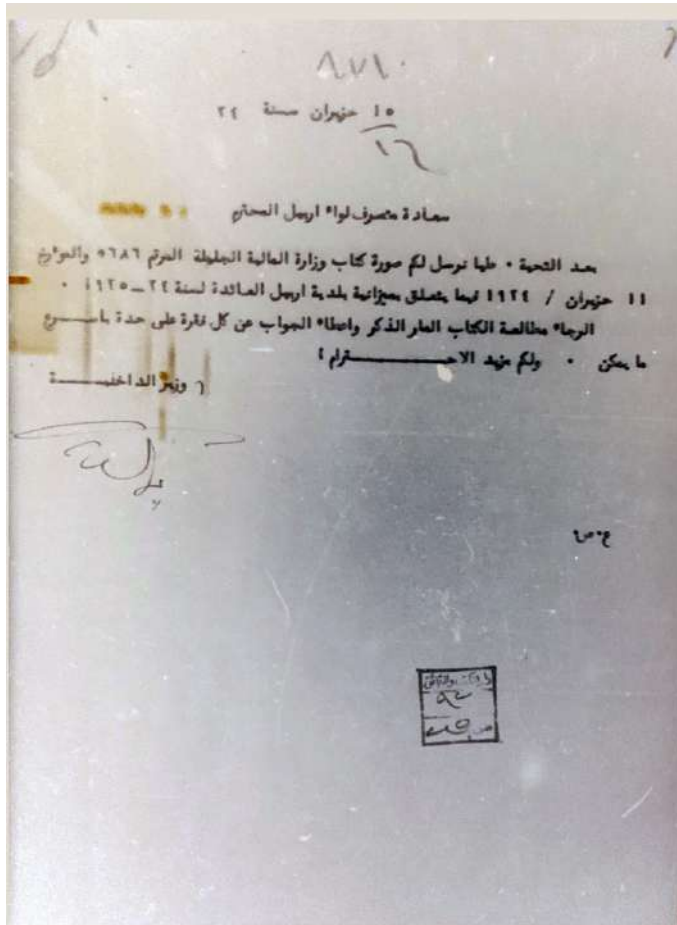 ٨٧١٠
١٥ حزيران سنة ٢٤
١٦
سعادة متصرف لواء اربيل المحترم
بعد التحية ٠ طيا نرسل لكم صورة كتاب وزارة المالية الجليلة المرقم ٥٦٨٦ والمؤرخ
١١ حزيران / ١٩٢٤ فيما يتعلق بميزانية بلدية اربيل العائدة لسنة ٢٤ــ١٩٢٥ ٠
الرجاء مطالعة الكتاب المار الذكر واعطاء الجواب عن كل فقرة على حدة باســـرع
ما يمكن ٠ ولكم مزيد الاحــــــــترام
وزير الداخليـــــة
ع٠ص